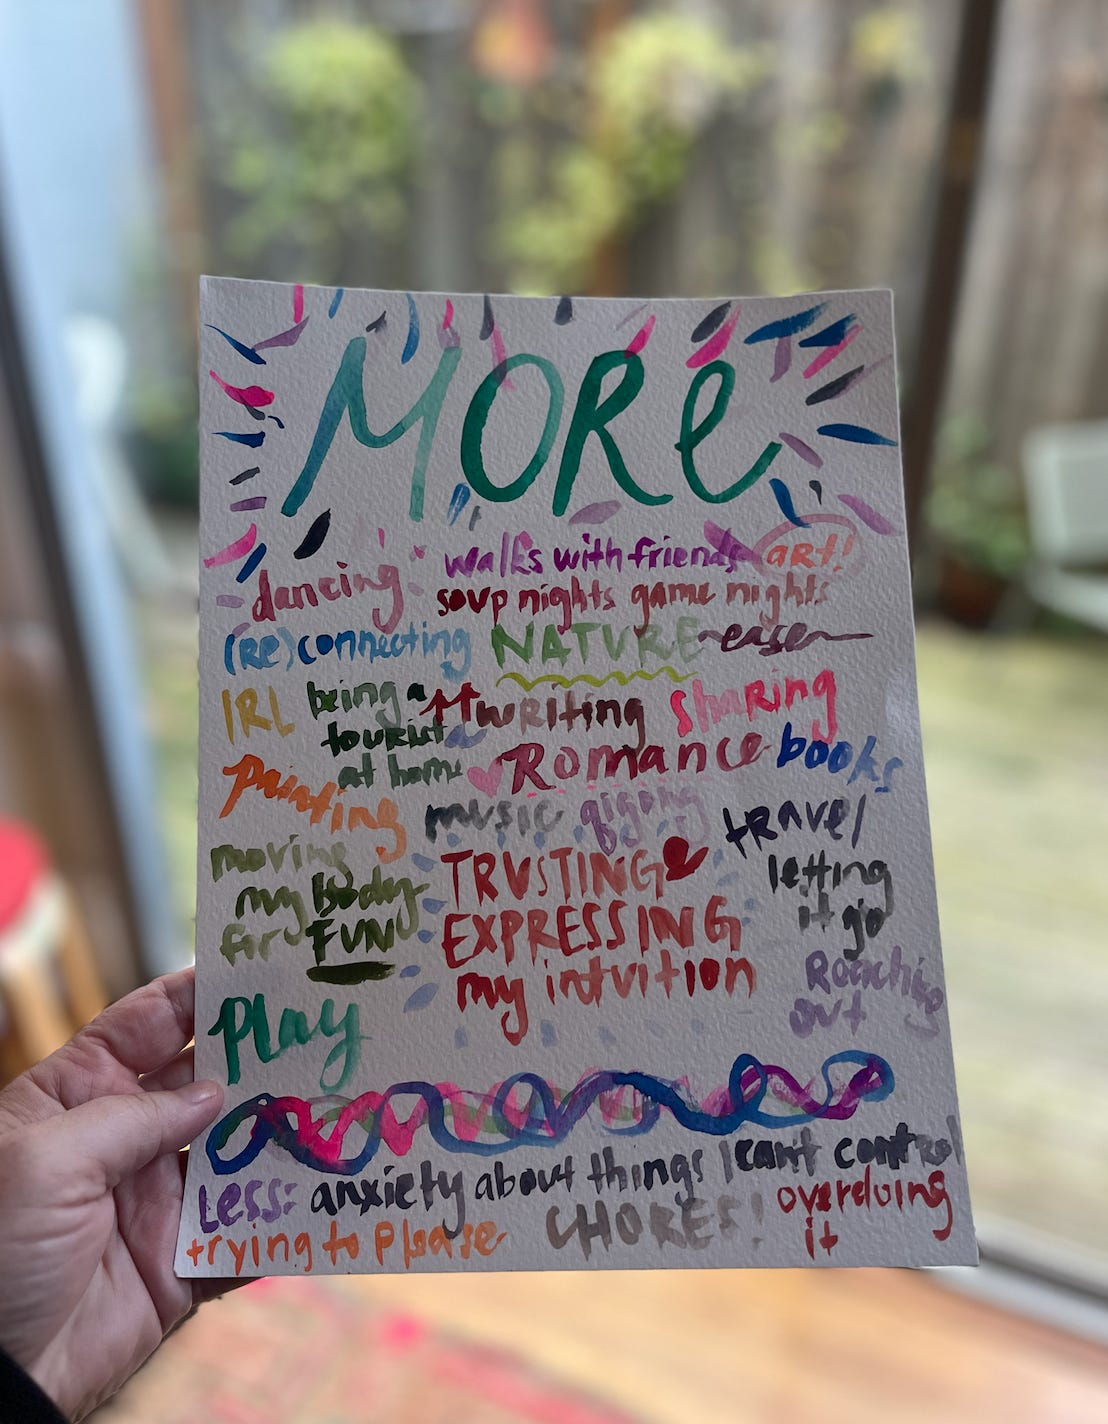 MORE
dancing walks with friends art!
soup nights game nights
(Re)connecting NATURE ease
IRL being a tourist at home writing sharing
painting Romance books
music qigong travel
moving my Body for FUN
TRUSTING
EXPRESSING
my intuition
letting it go
Reaching out
Play
Less: anxiety about things I can't control
trying to please CHORES! overdoing it